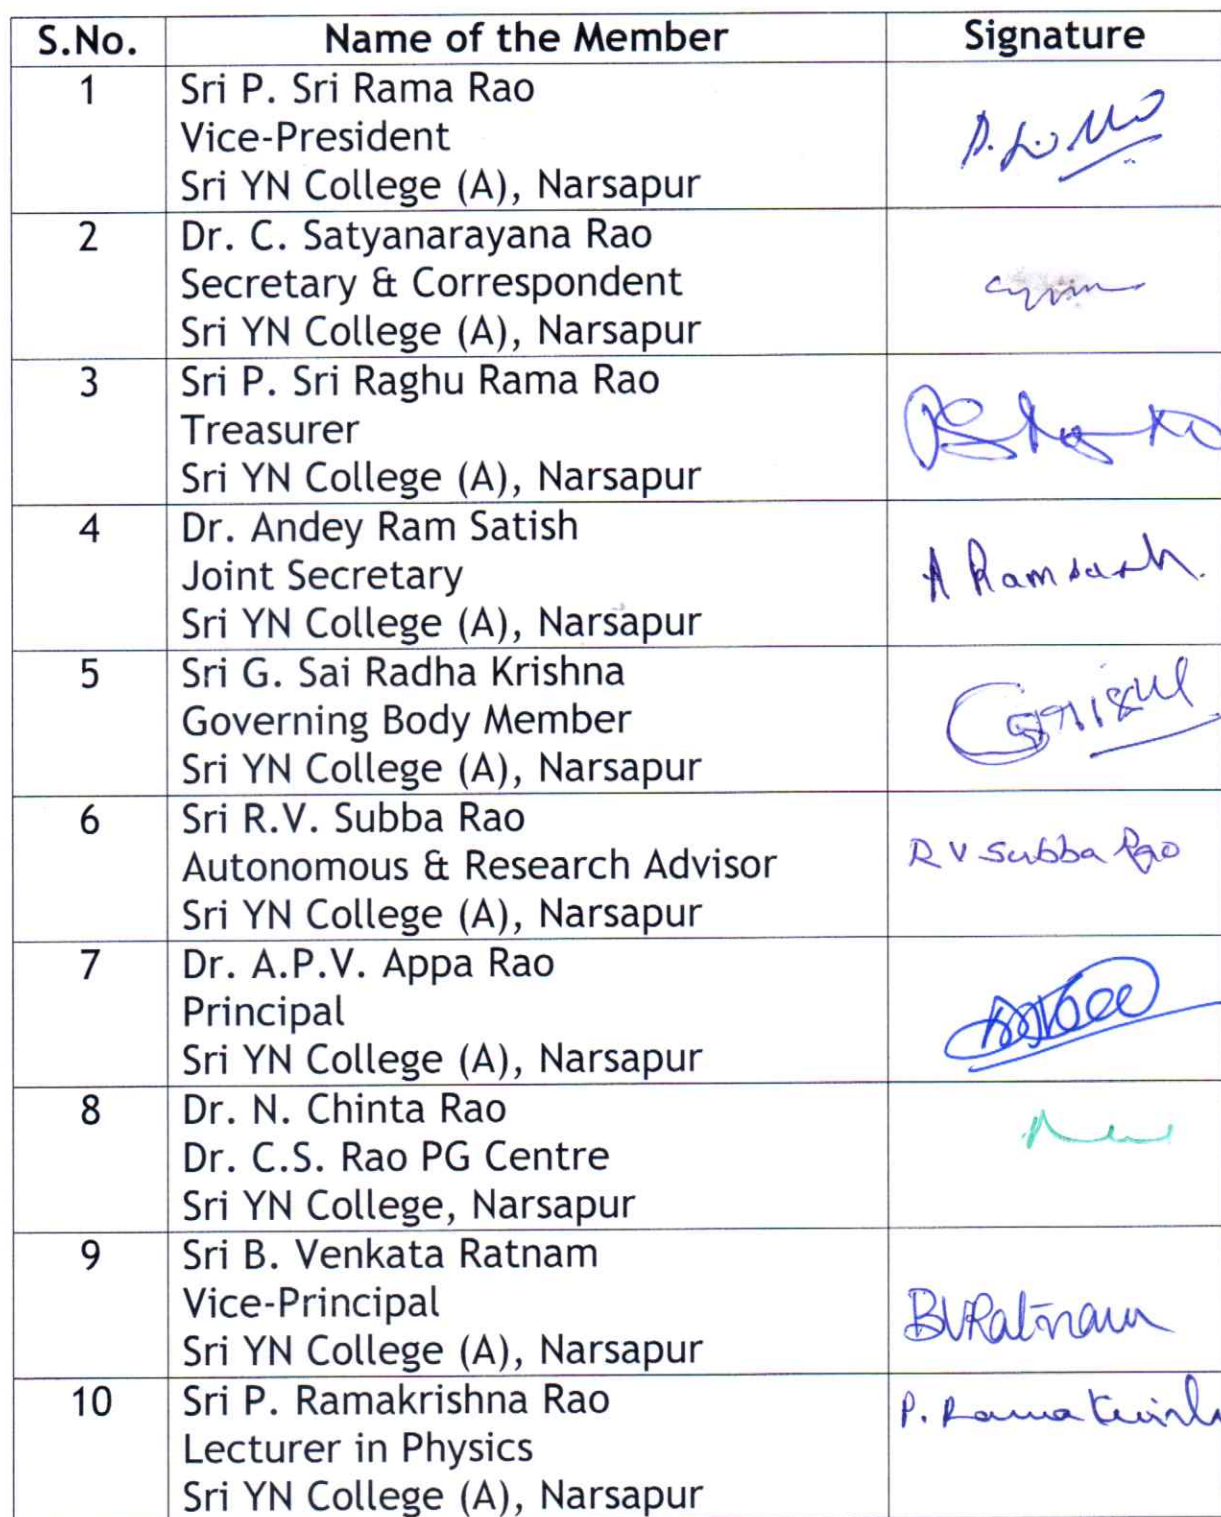 S.No. Name of the Member Signature
1 Sri P. Sri Rama Rao
Vice-President
Sri YN College (A), Narsapur
2 Dr. C. Satyanarayana Rao
Secretary & Correspondent
Sri YN College (A), Narsapur
3 Sri P. Sri Raghu Rama Rao
Treasurer
Sri YN College (A), Narsapur
4 Dr. Andey Ram Satish
Joint Secretary
Sri YN College (A), Narsapur
5 Sri G. Sai Radha Krishna
Governing Body Member
Sri YN College (A), Narsapur
6 Sri R.V. Subba Rao
Autonomous & Research Advisor R V Subba Rao
Sri YN College (A), Narsapur
7 Dr. A.P.V. Appa Rao
Principal
Sri YN College (A), Narsapur
8 Dr. N. Chinta Rao
Dr. C.S. Rao PG Centre
Sri YN College, Narsapur
9 Sri B. Venkata Ratnam
Vice-Principal BVRatnam
Sri YN College (A), Narsapur
10 Sri P. Ramakrishna Rao
Lecturer in Physics
Sri YN College (A), Narsapur